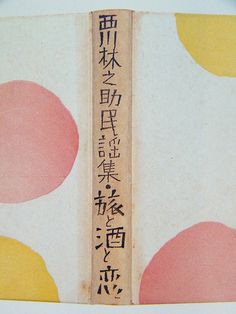 西川林之助民謡集・旅と酒と恋